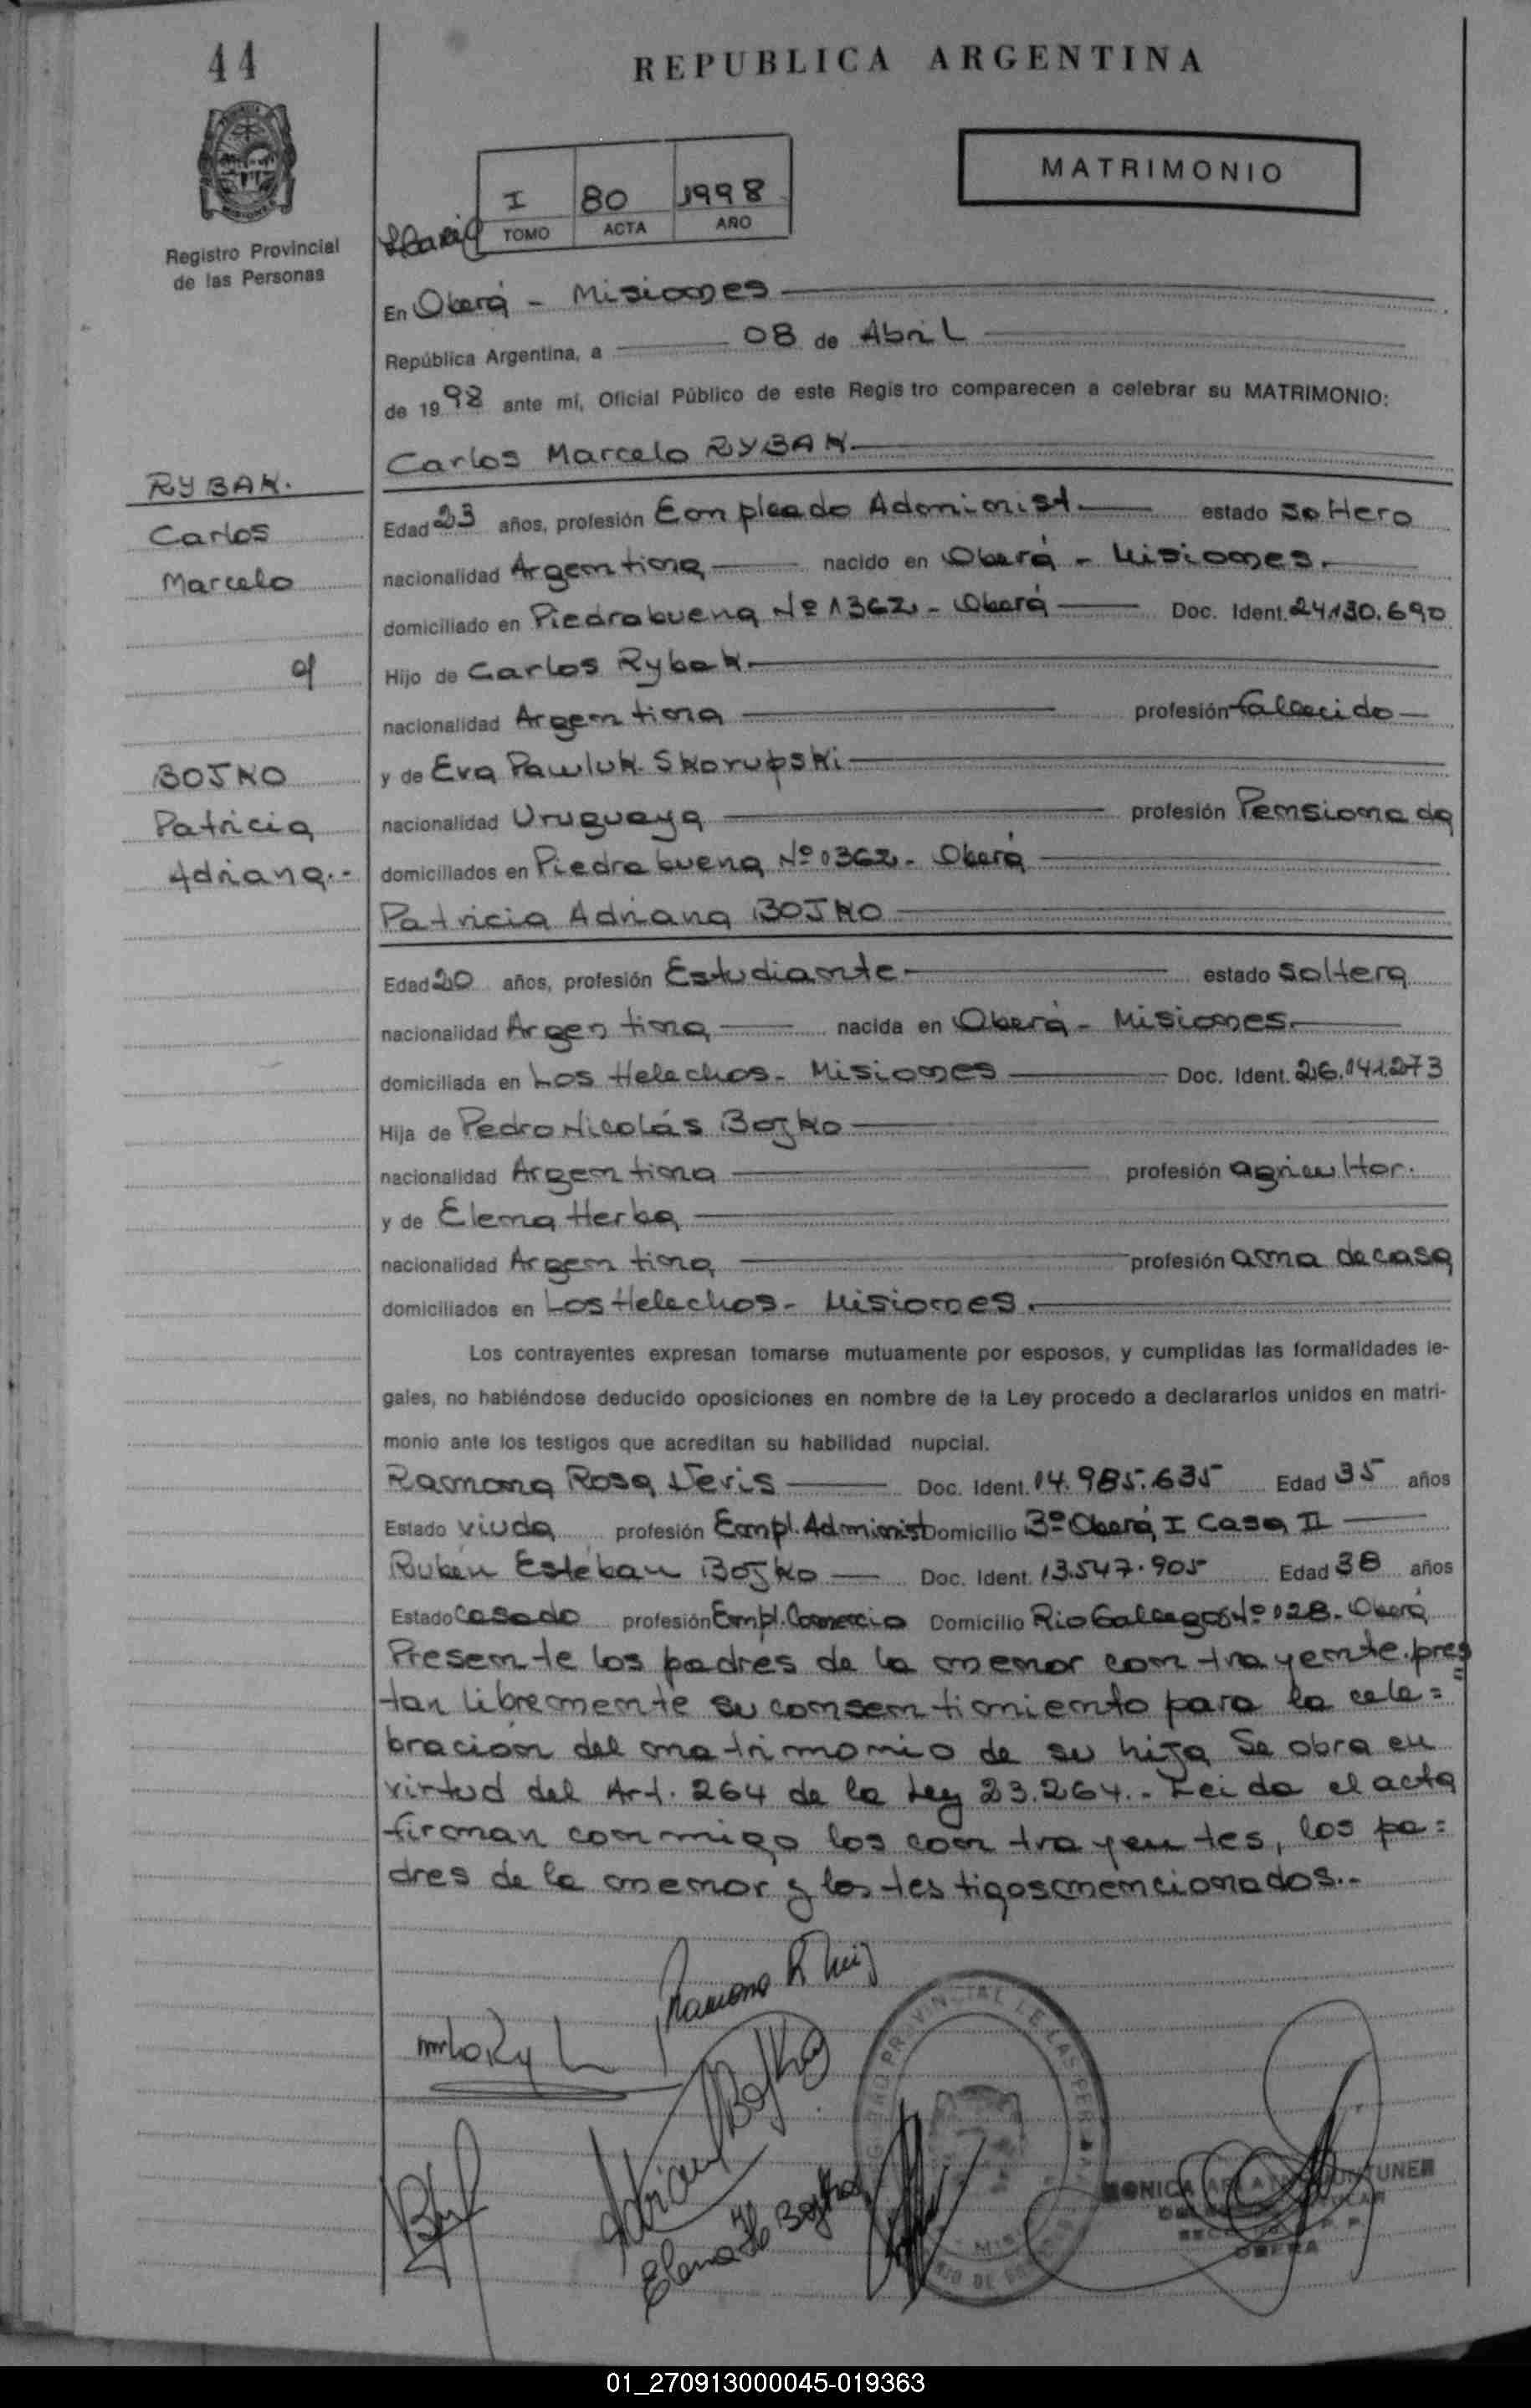 44
REPUBLICA ARGENTINA
MATRIMONIO
I 80 1998
TOMO ACTA AÑO
Registro Provincial
de las Personas
En Oberá - Misiones
República Argentina, a 08 de Abril
de 1998 ante mí, Oficial Público de este Regis tro comparecen a celebrar su MATRIMONIO:
Carlos Marcelo RYBAK.
RYBAK.
Carlos
Marcelo
c/
BOJKO
Patricia
Adriana.-
Edad 23 años, profesión Empleado Administ. estado soltero
nacionalidad Argentina nacido en Oberá - Misiones.
domiciliado en Piedrabuena Nº 1362 - Oberá Doc. Ident. 24.130.690
Hijo de Carlos Rybak.
nacionalidad Argentina profesión fallecido
y de Eva Pawluk Skorupski
nacionalidad Uruguaya profesión Pensionada
domiciliados en Piedrabuena Nº 1362 - Oberá
Patricia Adriana BOJKO
Edad 20 años, profesión Estudiante estado soltera
nacionalidad Argentina nacida en Oberá - Misiones.
domiciliada en Los Helechos - Misiones Doc. Ident. 26.141.273
Hija de Pedro Nicolás Bojko
nacionalidad Argentina profesión agricultor.
y de Elena Herba
nacionalidad Argentina profesión ama de casa
domiciliados en Los Helechos - Misiones.
Los contrayentes expresan tomarse mutuamente por esposos, y cumplidas las formalidades le-
gales, no habiéndose deducido oposiciones en nombre de la Ley procedo a declararlos unidos en matri-
monio ante los testigos que acreditan su habilidad nupcial.
Ramona Rosa Doc. Ident. 14.985.635 Edad 35 años
Estado viuda profesión Empl. Administ Domicilio Bº Oberá I Casa II
Rubén Estéban Bojko Doc. Ident. 13.547.905 Edad 38 años
Estado casado profesión Empl. Comercio Domicilio Rio Gallegos Nº 128 - Oberá
Presente los padres de la menor contrayente. pres
tan libremente su consentimiento para la cele=
bración del matrimonio de su hija Se obra en
virtud del Art. 264 de la Ley 23.264.- Leida el acta
firman conmigo los contrayentes, los pa=
dres de la menor y los testigos mencionados.-
Ramona R
Bojko
Elena H Bojko
PROVINCIAL DE LAS PER
MONICA
OBERA
01_270913000045-019363